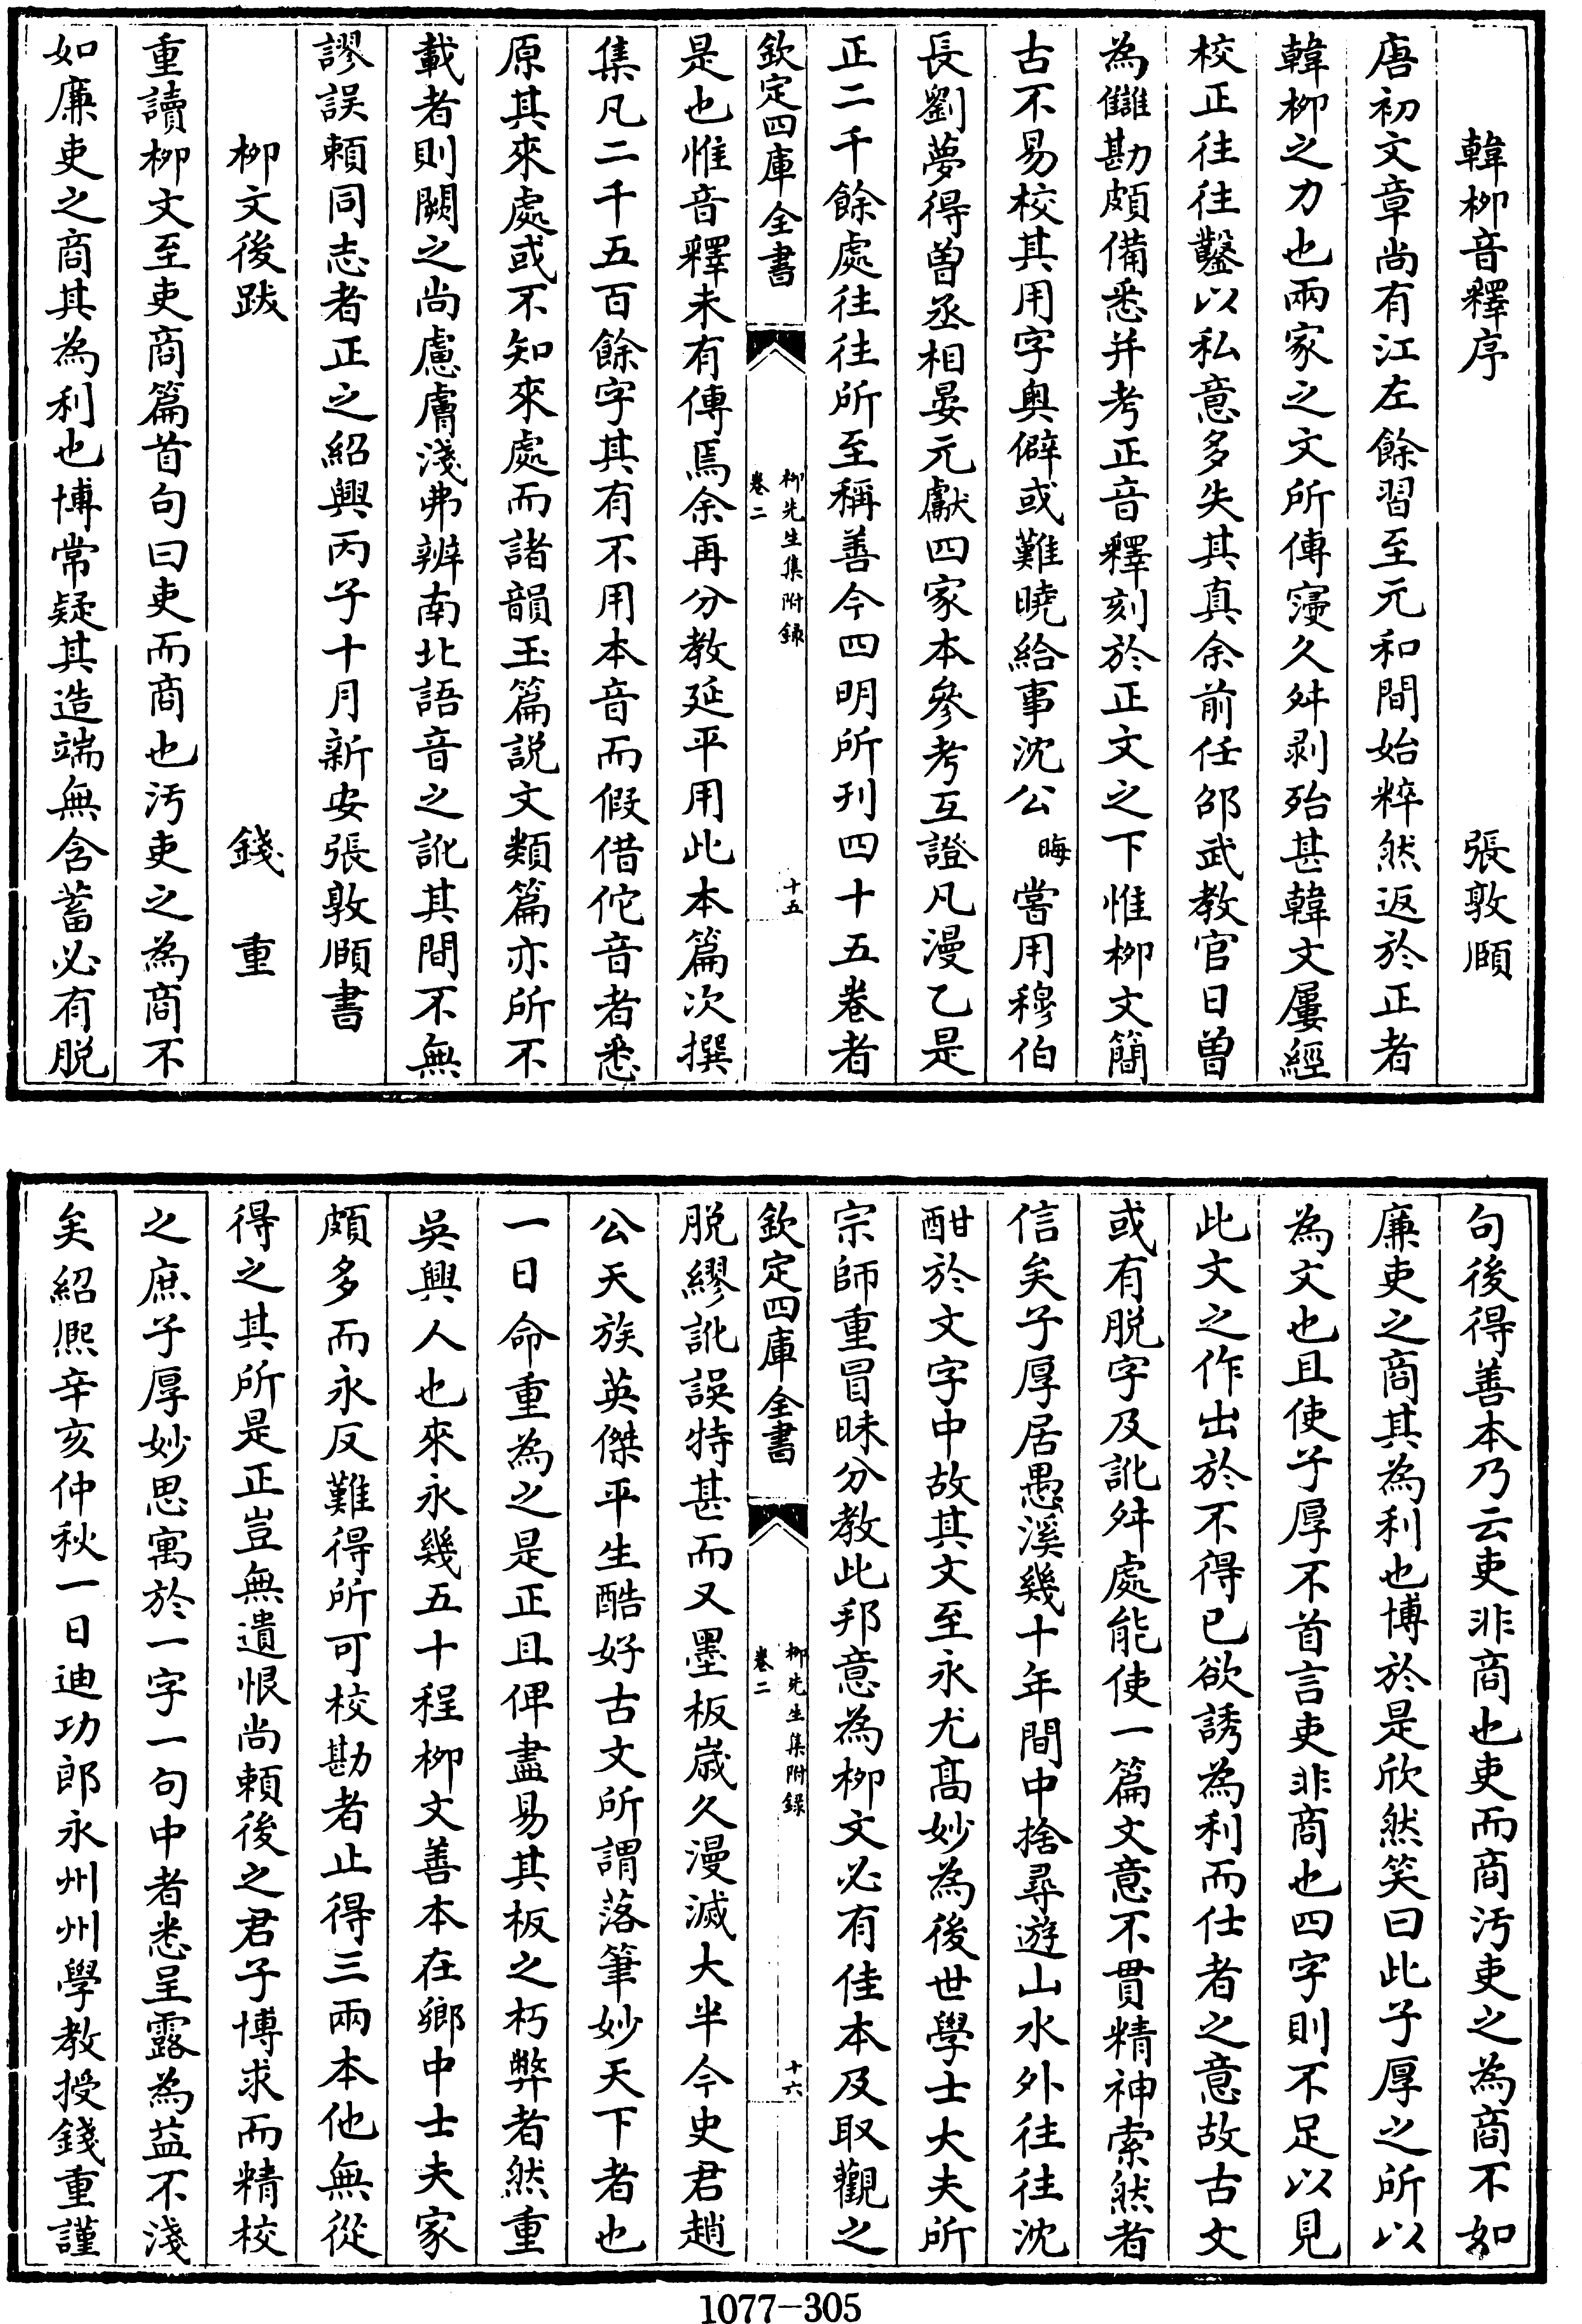 韓柳音釋序　張敦頤
唐初文章尚有江左餘習至元和間始粹然返於正者
韓柳之力也兩家之文所傳寖久舛剥殆甚韓文屢經
校正往往鑿以私意多失其真余前任邵武教官日曽
為讎勘頗備悉并考正音釋刻於正文之下惟柳文簡
古不易校其用字奥僻或難曉給事沈公晦嘗用穆伯
長劉夢得曽丞相晏元獻四家本參考互證凡漫乙是
正二千餘處往往所至稱善今四明所刋四十五卷者
欽定四庫全書
柳先生集附録
卷二
十五
是也惟音釋未有傳焉余再分教延平用此本篇次撰
集凡二千五百餘字其有不用本音而假借佗音者悉
原其來處或不知來處而諸韻玉篇説文類篇亦所不
載者則闕之尚慮膚淺弗辨南北語音之訛其間不無
謬誤頼同志者正之紹興丙子十月新安張敦頤書
柳文後跋　錢重
重讀柳文至吏商篇首句曰吏而商也汚吏之為商不
如廉吏之商其為利也博常疑其造端無含蓄必有脱
句後得善本乃云吏非商也吏而商汚吏之為商不如
廉吏之商其為利也博於是欣然笑曰此子厚之所以
為文也且使子厚不首言吏非商也四字則不足以見
此文之作出於不得已欲誘為利而仕者之意故古文
或有脱字及訛舛處能使一篇文意不貫精神索然者
信矣子厚居愚溪幾十年間中捨尋遊山水外往往沈
酣於文字中故其文至永尤髙妙為後世學士大夫所
宗師重冒昧分教此邦意為柳文必有佳本及取觀之
欽定四庫全書
柳先生集附録
卷二
十六
脱繆訛誤特甚而又墨板嵗久漫滅大半今史君趙
公天族英傑平生酷好古文所謂落筆妙天下者也
一日命重為之是正且俾盡易其板之朽弊者然重
吳興人也來永幾五十程柳文善本在鄉中士夫家
頗多而永反難得所可校勘者止得三兩本他無從
得之其所是正豈無遺恨尚頼後之君子博求而精校
之庶子厚妙思寓於一字一句中者悉呈露為益不淺
矣紹熙辛亥仲秋一日迪功郎永州州學教授錢重謹
1077-305